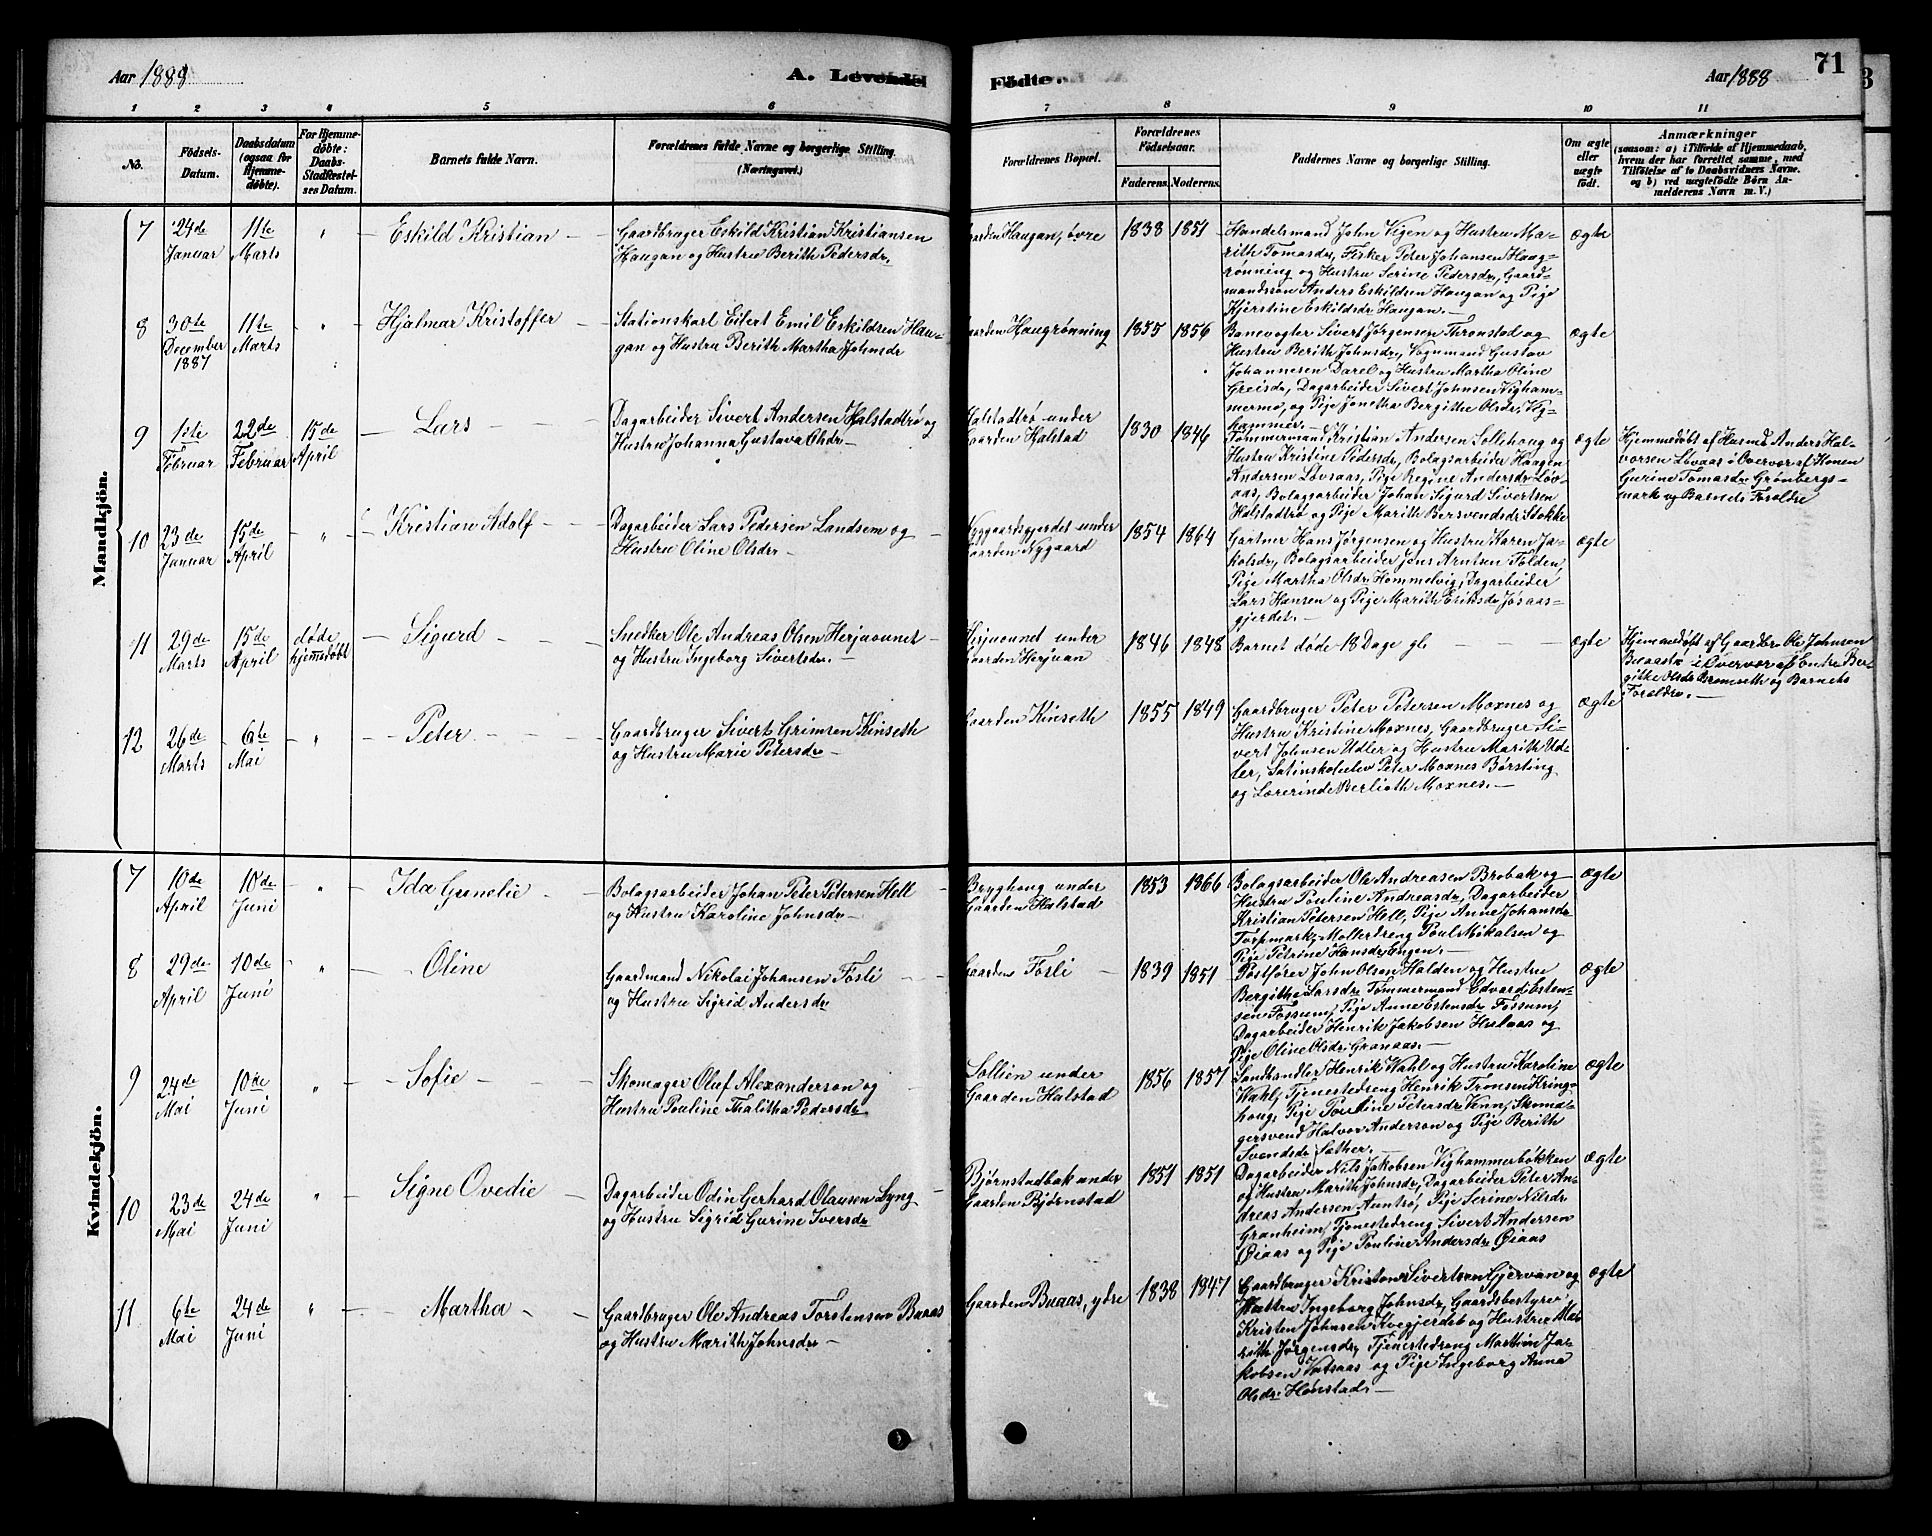 Aar 1888
A. Levende
Fødte.
Aar 1888
71
1 2 3 4 5 6 7 8 9 10 11
No.
Fødsels-
Datum.
Daabsdatum
(ogsaa for
Hjemme-
døbte).
For Hjemme-
døbte:
Daabs-
Stadfæstel-
ses Datum.
Barnets fulde Navn.
Forældrenes fulde Navne og borgerlige Stilling.
(Næringsvei.)
Forældrenes Bopæl.
Forældrenes
Fødselsaar.
Faderens. Moderens.
Faddernes Navne og borgerlige Stilling.
Om ægte
eller
uægte
født.
Anmærkninger
(saasom: a) i Tilfælde af Hjemmedaab,
hvem der har forrettet samme, med
Tilføielse af to Daabsvidners Navne.
og b) ved uægtefødte Børn An-
melderens Navn m. V.)
Mandkjön.
7
24de
Januar
11te
Marts
Eskild Kristian
Gaardbruger Eskild Kristian Kristiansen
Haugan og Hustru Berith Pedersdr.
Gaarden Haugan, øvre
1838 1851
Handelsmand John Vigen og Hustru Ma-
rith Tomasdr, Fisker Peter Johansen Haug-
rønning og Hustru Serine Pedersdr, Gaard-
mandssøn Anders Eskildsen Haugan og Pige
Kjerstine Eskildsdr Haugan.
ægte
8
30te
December
1887
11te
Marts
Hjalmar Kristoffer
Stationskarl Eilert Emil Eskildsen Hau-
gan og Hustru Berith Martha Johnsdr
Gaarden Haugrønning
1855 1856
Banevogter Sivert Jørgensen Thronstad og
Hustru Berith Johnsdr, Vognmand Gustav
Johannesen Darel og Hustru Martha Oline
Greisdr, Dagarbeider Sivert Johnsen Vigham-
mermo, og Pige Jonetha Bergithe Olsdr. Vig-
hammer.
ægte
9
1ste
Februar
22de
Februar
15de
April
Lars
Dagarbeider Sivert Andersen Halstadtrø og
Hustru Johanna Gustava Olsdr
Halstadtrø under
Gaarden Halstad
1830 1846
Tømmermand Kristian Andersen Sollihoug og
Hustru Kristine Pedersdr, Bolagsarbeider Haagen
Andersen Løvaas, Pige Regine Andersdr Løv-
aas, Bolagsarbeider Johan Sigurd Sivertsen
Halstadtrø og Pige Marith Bersvendsdr Stokke
ægte
Hjemmedøbt af Husmd Anders Hal-
vorsen Løvaas i Overvær af Konen
Gurine Tomasdr Grønbergs-
mark og Barnets Forældre
10
23de
Januar
15de
April
Kristian Adolf
Dagarbeider Lars Pedersen Landsem og
Hustru Oline Olsdr
Nygaardsgjerdet under
Gaarden Nygaard
1854 1864
Gartner Hans Jørgensen og Hustru Karen Ja-
kobsdr, Bolagsarbeider Jens Arntsen Folden,
Pige Martha Olsdr Hommelvig, Dagarbeider
Lars Hansen og Pige Marith Eriksdr Jøsaas-
gjerdet.
ægte
11
29de
Marts
15de
April
døde
hjemmedøbt
Sigurd
Snedker Ole Andreas Olsen Herjuounet
og Hustru Ingeborg Sivertsdr.
Herjuounet under
Gaarden Herjuan
1846 1848
Barnet døde 18 Dage gl.
ægte
Hjemmedøbt af Gaardbr. Ole Johnsen
Buaas i Overvær af Enke Ber-
githe Olsdr Bremseth og Barnets
Forældre.
12
26de
Marts
6te
Mai
Peter
Gaardbruger Sivert Grimsen Kinseth
og Hustru Marie Petersdr
Gaarden Kinseth
1855 1849
Gaardbruger Peter Petersen Moxnes og
Hustru Kristine Moxnes, Gaardbruger Si-
vert Johnsen Udler og Hustru Marith Ud-
ler, Latinskoleelev Peter Moxnes Børsting
og Lærerinde Berlioth Moxnes.
ægte
Kvindekjön.
7
10de
April
10de
Juni
Ida Gunelie
Bolagsarbeider Johan Peter Petersen Hell
og Hustru Karoline Johnsdr
Bryghoug under
Gaarden Halstad
1853 1866
Bolagsarbeider Ole Andreasen Brobak og
Hustru Pouline Andreasdr, Dagarbeider
Kristian Petersen Hell, Pige Anne Johansdr
Torpmark, Møllerdreng Poul Mikalsen og
Pige Petrine Hansdr Engen.
ægte
8
29de
April
10de
Juni
Oline
Gaardmand Nikolai Johansen Fosli
og Hustru Sigrid Andersdr
Gaarden Fosli
1839 1851
Postfører John Olsen Halden og Hustru
Bergitha Larsdr, Tømmermand Edvard Esten-
sen Fossum, Pige Anne Estensdr Fossum,
Dagarbeider Henrik Jakobsen Hulaas og
Pige Oline Olsdr Granaas.
ægte
9
24de
Mai
10de
Juni
Sofie
Skomager Oluf Alexanderson og
Hustru Pouline Thalitha Pedersdr
Sollien under
Gaarden Halstad
1856 1857
Landhandler Henrik Wahl og Hustru Karoline
Wahl, Tjenestedreng Henrik Tronsen Kring-
houg, Pige Pouline Petersdr Venn, Skoma-
gersvend Halvor Anderson og Pige Berith
Svendsdr Sather.
ægte
10
23de
Mai
24de
Juni
Signe Ovedie
Dagarbeider Odin Gerhard Olausen Lyng
og Hustru Sigrid Gurine Iversdr
Bjørnstadbak under
Gaarden Bjørnstad
1851 1851
Dagarbeider Nils Jakobsen Vighammerbakken
og Hustru Marith Johnsdr, Dagarbeider Peter An-
dreas Andersen Auntrø, Pige Serine Nilsdr
Granheim, Tjenestedreng Sivert Andersen
Øiaas og Pige Pouline Andersdr Øiaas
ægte
11
6te
Mai
24de
Juni
Martha
Gaardbruger Ole Andreas Torstensen Buaas
og Hustru Marith Johnsdr
Gaarden Buaas, ydre
1838 1847
Gaardbruger Kristen Sivertsen Gjervan og
Hustru Ingeborg Johnsdr, Gaardsbestyrer
Kristen Johnsen Kvegjerdet og Hustru Ma-
rith Jørgensdr, Tjenestedreng Martin Ja-
kobsen Vatsaas og Pige Ingeborg Anna
Olsdr Hønstad.
ægte